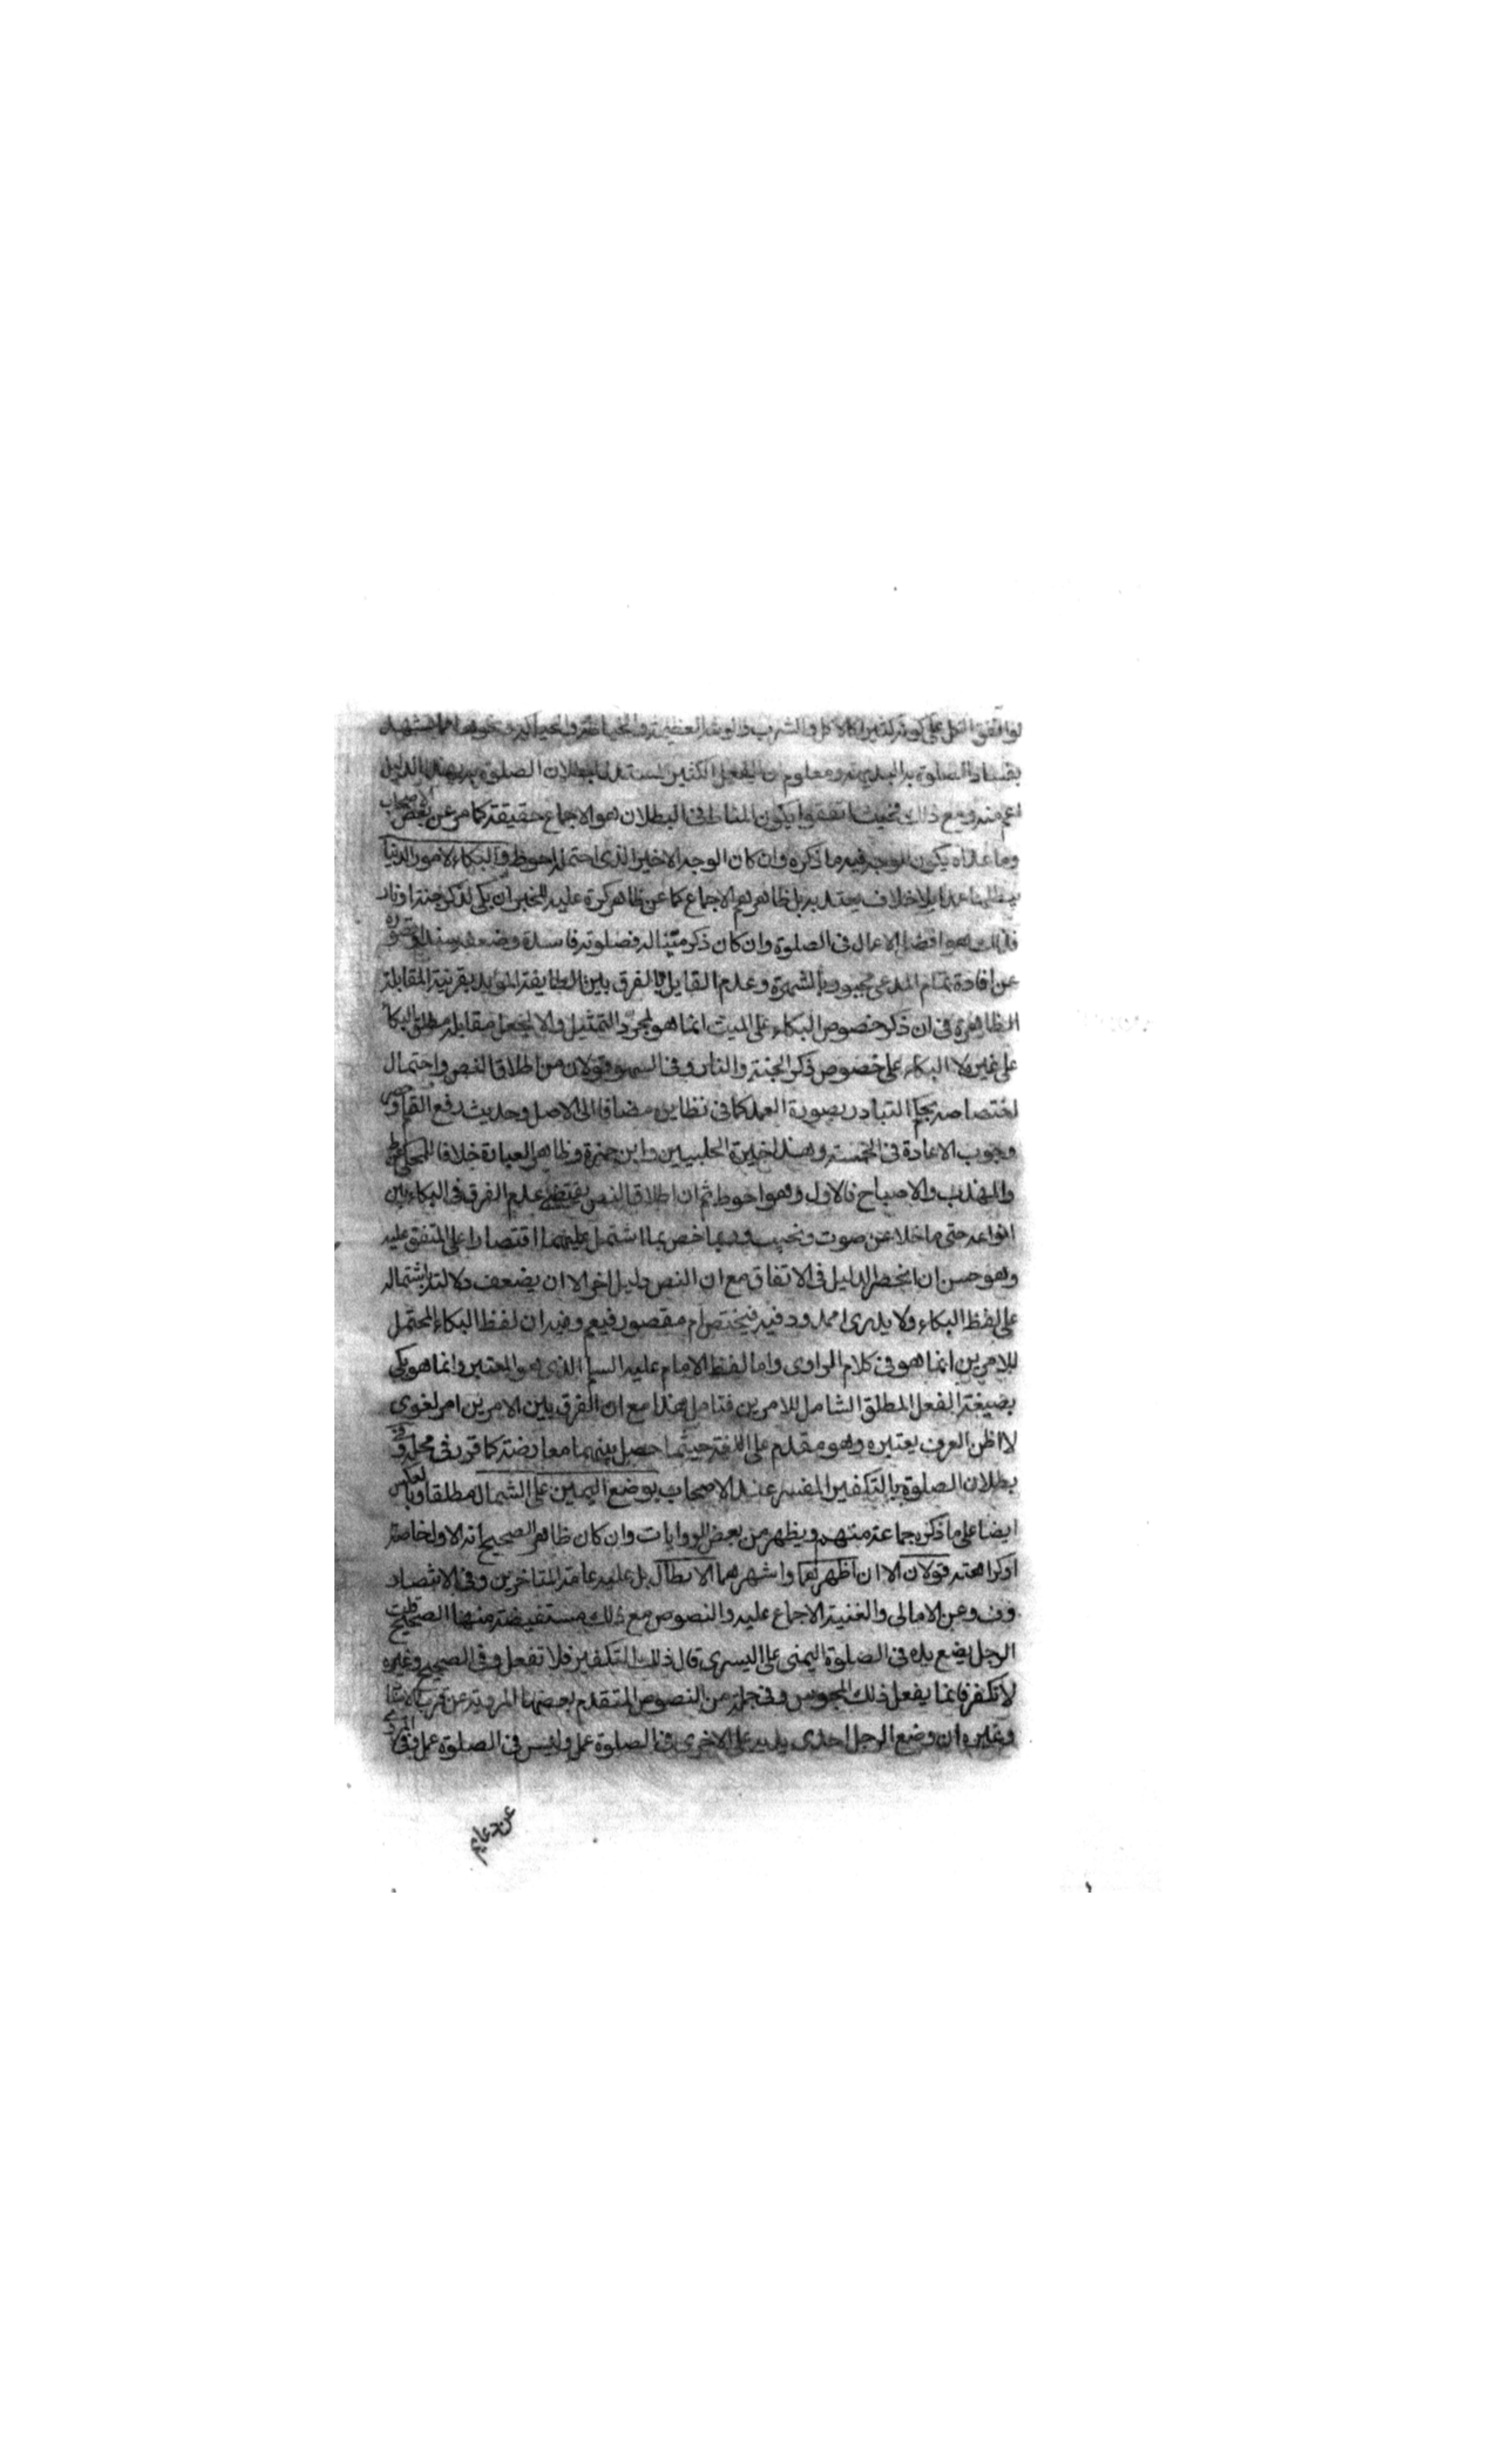 لو اتفق الكل على كونه كثيرا كالاكل والشرب والوثبة العظيمة والخياطة والحياكة ونحوها مما يشهد
بفساد الصلوة به البديهة ومعلوم ان الفعل الكثير المستدل لبطلان الصلوة به بهذا الدليل
اعم منه ومع ذلك فحيث اتفقوا يكون المناط في البطلان هو الاجماع حقيقة كما مر عن بعض الاصحاب
وما عداه يكون الوجه فيه ما ذكره وان كان الوجه الاخير الذي احتمله احوط والبكاء لامور الدنيا
يبطلها عمدا بلا خلاف يعتد به بل ظاهرهم الاجماع كما عن ظاهر كرة عليه للخبر ان بكى لذكر جنة او نار
فذلك هو افضل الاعمال في الصلوة وان كان ذكر ميتا له فصلوته فاسدة وضعف سنده وقصوره
عن افادة تمام المدعى مجبور بالشهرة وعدم القايل بالفرق بين الطايفة المؤيد بقرينة المقابلة
الظاهرة في ان ذكر خصوص البكاء على الميت انما هو لمجرد التمثيل والا لجعل مقابله مطلق البكاء
على غيره لا البكاء على خصوص ذكر الجنة والنار وفي السهو قولان من اطلاق النص واحتمال
اختصاصه بحكم التبادر بصورة العمد كما في نظايره مضافا الى الاصل وحديث رفع القلم
وجوب الاعادة في الخمسة وهذا خيرة الحلبيين وابن حمزة وظاهر العبارة خلافا للمحكي عن ط
والمهذب والاصباح فالاول وهو احوط ثم ان اطلاق النص يقتضي عدم الفرق في البكاء بين
انواعه حتى ما خلا عن صوت ونحيب وربما خص بما اشتمل عليهما اقتصارا على المتفق عليه
وهو حسن ان انحصر الدليل في الاتفاق مع ان النص دليل اخر الا ان يضعف دلالته باشتماله
على لفظ البكاء ولا يدرى امدود فيه فيختص ام مقصور فيعم وفيه ان لفظ البكاء المحتمل
للامرين انما هو في كلام الراوي واما لفظ الامام عليه السلم الذي هو المعتبر وانما هو بكى
بصيغة الفعل المطلق الشامل للامرين فتامل هذا مع ان الفرق بين الامرين امر لغوي
لا اظن العرف يعتبره وهو مقدم على اللغة حيثما حصل بينهما معارضة كما قرر في محله وفي
بطلان الصلوة بالتكفير المفسر عند الاصحاب بوضع اليمين على الشمال مطلقا وبالعكس
ايضا على ما ذكره جماعة منهم ويظهر من بعض الروايات وان كان ظاهر الصحيح انه الاول خاصة
او كراهته قولان الا ان اظهرهما واشهرهما الابطال بل عليه عامة المتاخرين وفي الانتصار
وف وعن الامالي والغنية الاجماع عليه والنصوص مع ذلك مستفيضة منها الصحيح قلت
الرجل يضع يده في الصلوة اليمنى على اليسرى قال ذلك التكفير فلا تفعل وفي الصحيح وغيره
لا تكفر فانما يفعل ذلك المجوس وفي جملة من النصوص المتقدم بعضها المروية عن قرب الاسناد
وغيره ان وضع الرجل احدى يديه على الاخرى في الصلوة عمل وليس في الصلوة عمل وفي المروي
عن دعايم